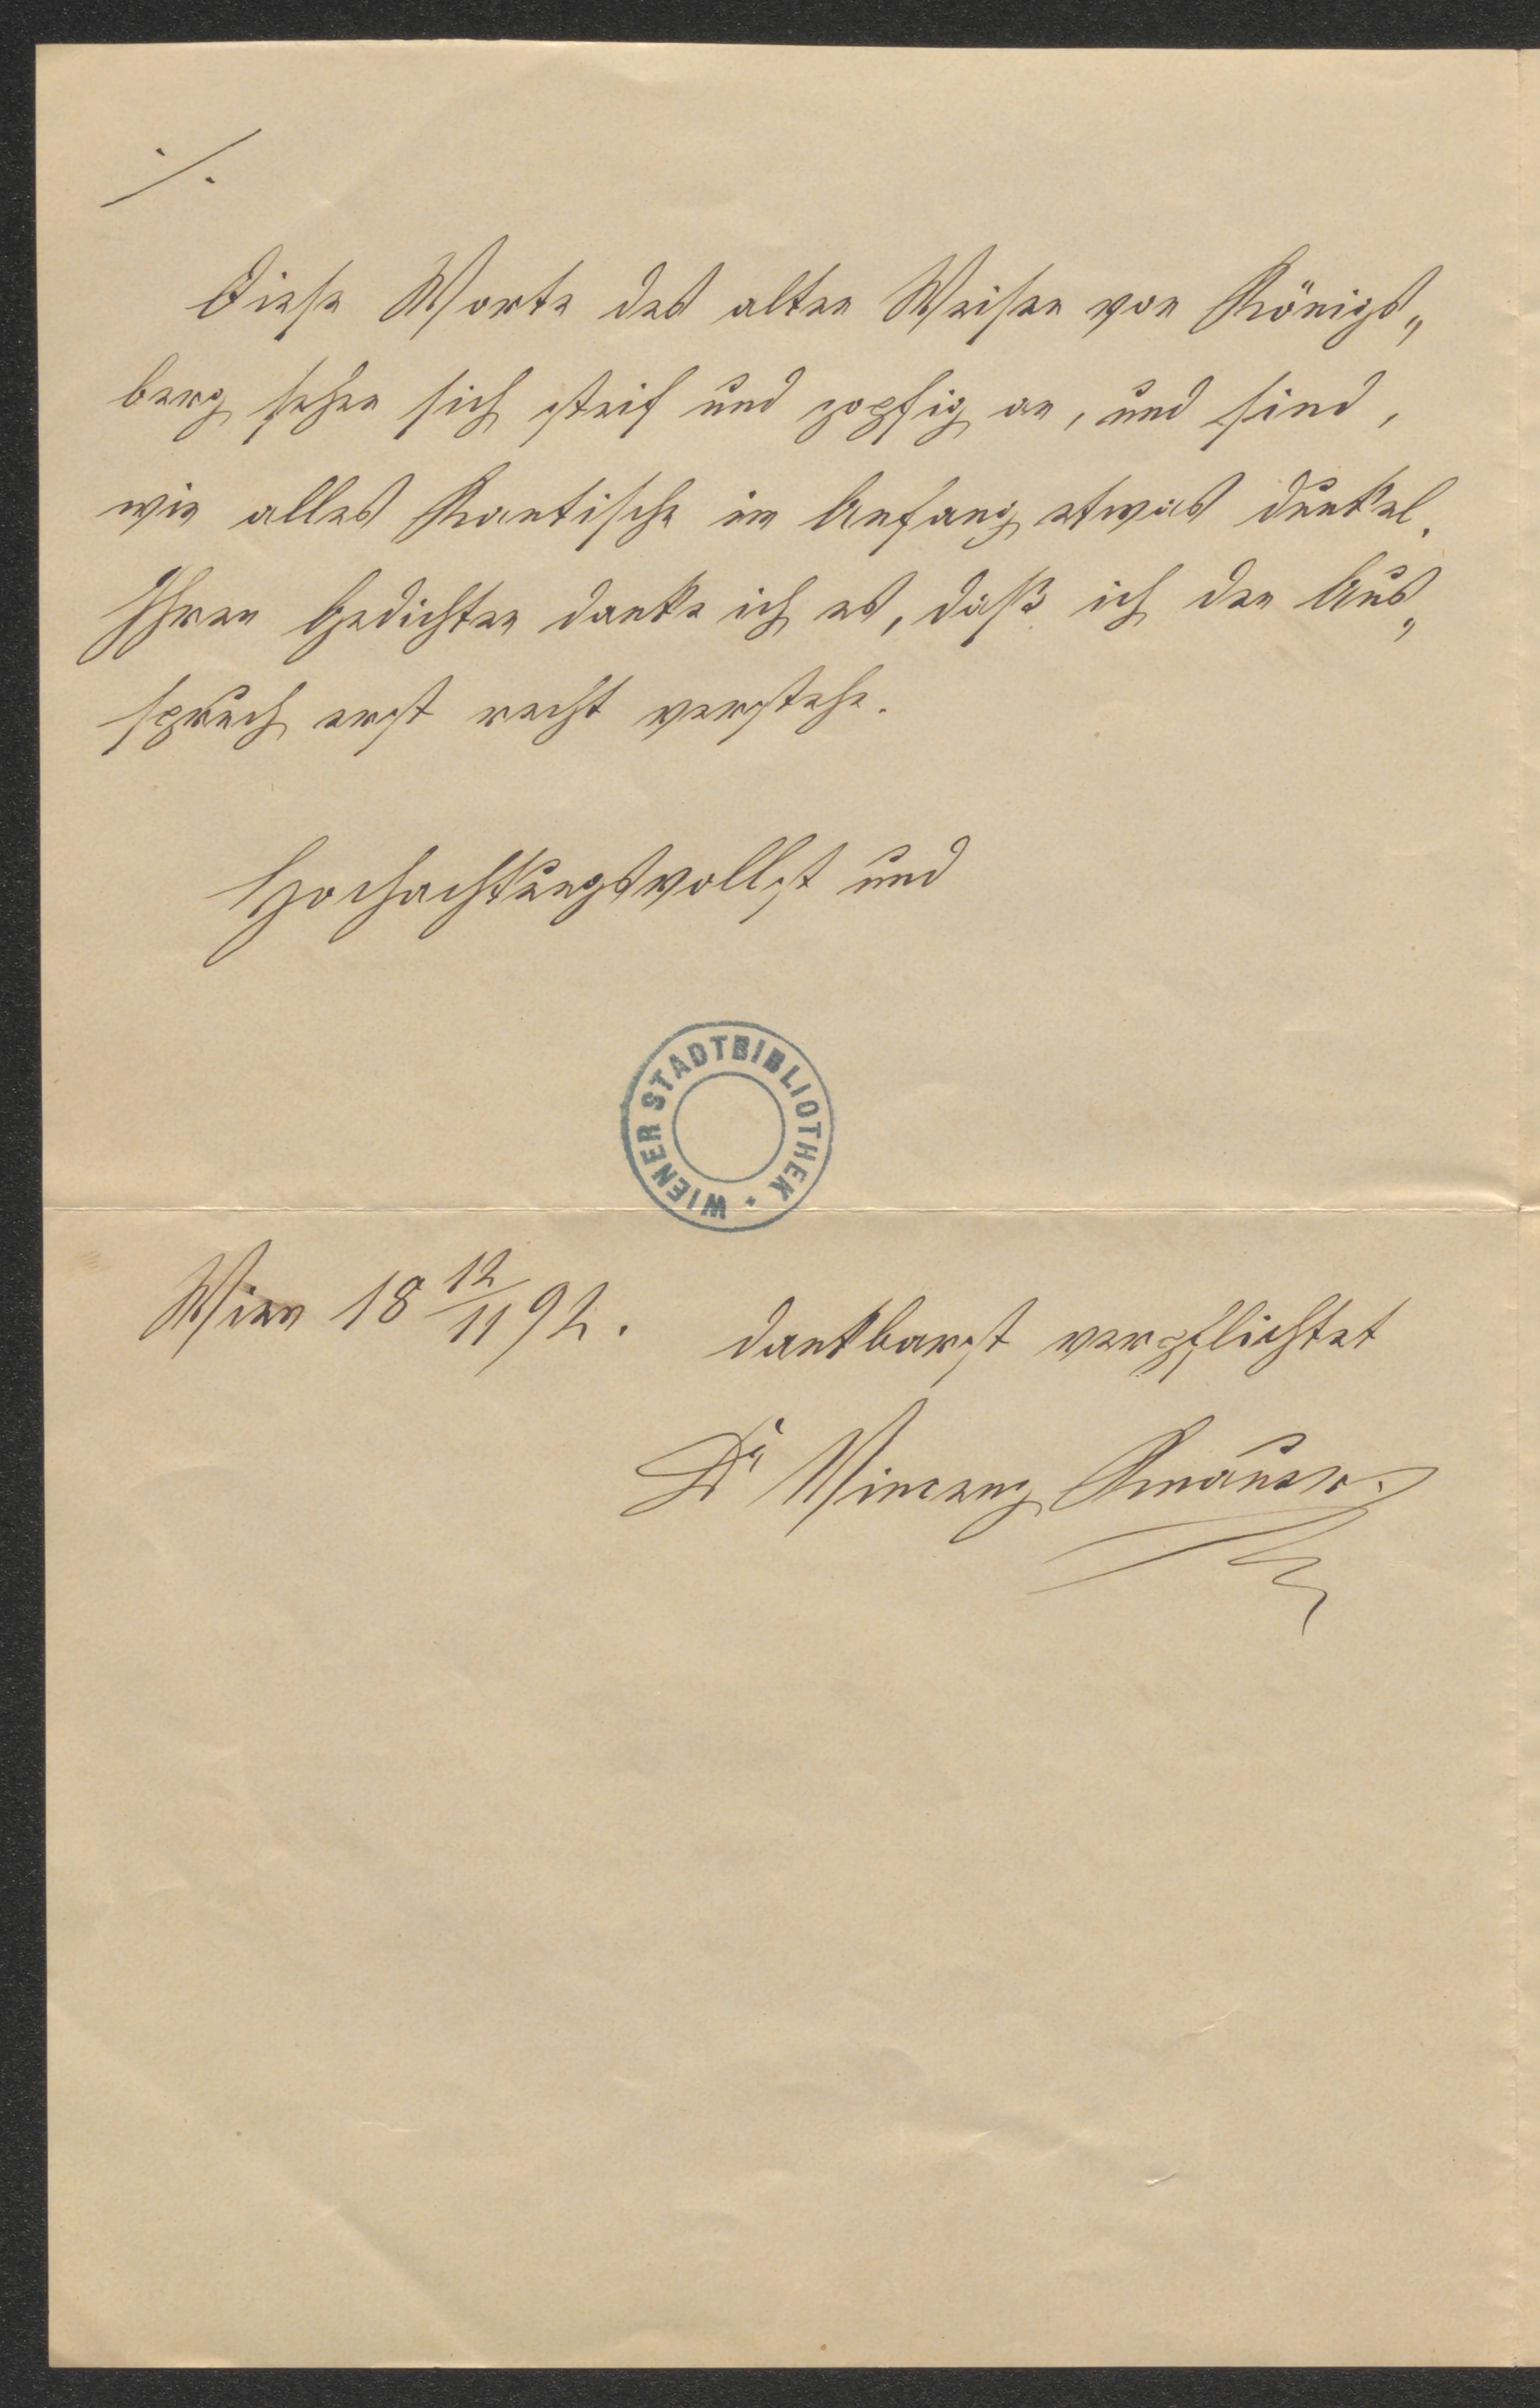 ./.
Diese Worte des alten Weisen von Königs„
berg sehen sich steif und zopfig an, und sind,
wie alles Kantische im Anfang etwas dunkel.
Ihren Gedichten danke ich es, daß ich den Aus„
spruch erst recht verstehe.
Hochachtungsvollst und
WIENER STADTBIBLIOTHEK *
Wien 18 12/11 92.
dankbarst verpflichtet
Dr Vincenz Knauer.